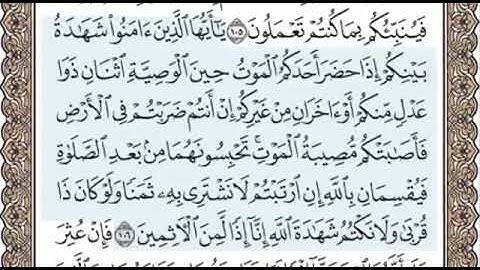 فَيُنَبِّئُكُم بِمَا كُنتُمْ تَعْمَلُونَ ١٠٥ يَٰٓأَيُّهَا ٱلَّذِينَ ءَامَنُوا۟ شَهَٰدَةُ
بَيْنِكُمْ إِذَا حَضَرَ أَحَدَكُمُ ٱلْمَوْتُ حِينَ ٱلْوَصِيَّةِ ٱثْنَانِ ذَوَا
عَدْلٍ مِّنكُمْ أَوْ ءَاخَرَانِ مِنْ غَيْرِكُمْ إِنْ أَنتُمْ ضَرَبْتُمْ فِى ٱلْأَرْضِ
فَأَصَٰبَتْكُم مُّصِيبَةُ ٱلْمَوْتِ ۚ تَحْبِسُونَهُمَا مِنۢ بَعْدِ ٱلصَّلَوٰةِ
فَيُقْسِمَانِ بِٱللَّهِ إِنِ ٱرْتَبْتُمْ لَا نَشْتَرِى بِهِۦ ثَمَنًا وَلَوْ كَانَ ذَا
قُرْبَىٰ ۙ وَلَا نَكْتُمُ شَهَٰدَةَ ٱللَّهِ إِنَّآ إِذًا لَّمِنَ ٱلْءَاثِمِينَ ١٠٦ فَإِنْ عُثِرَ